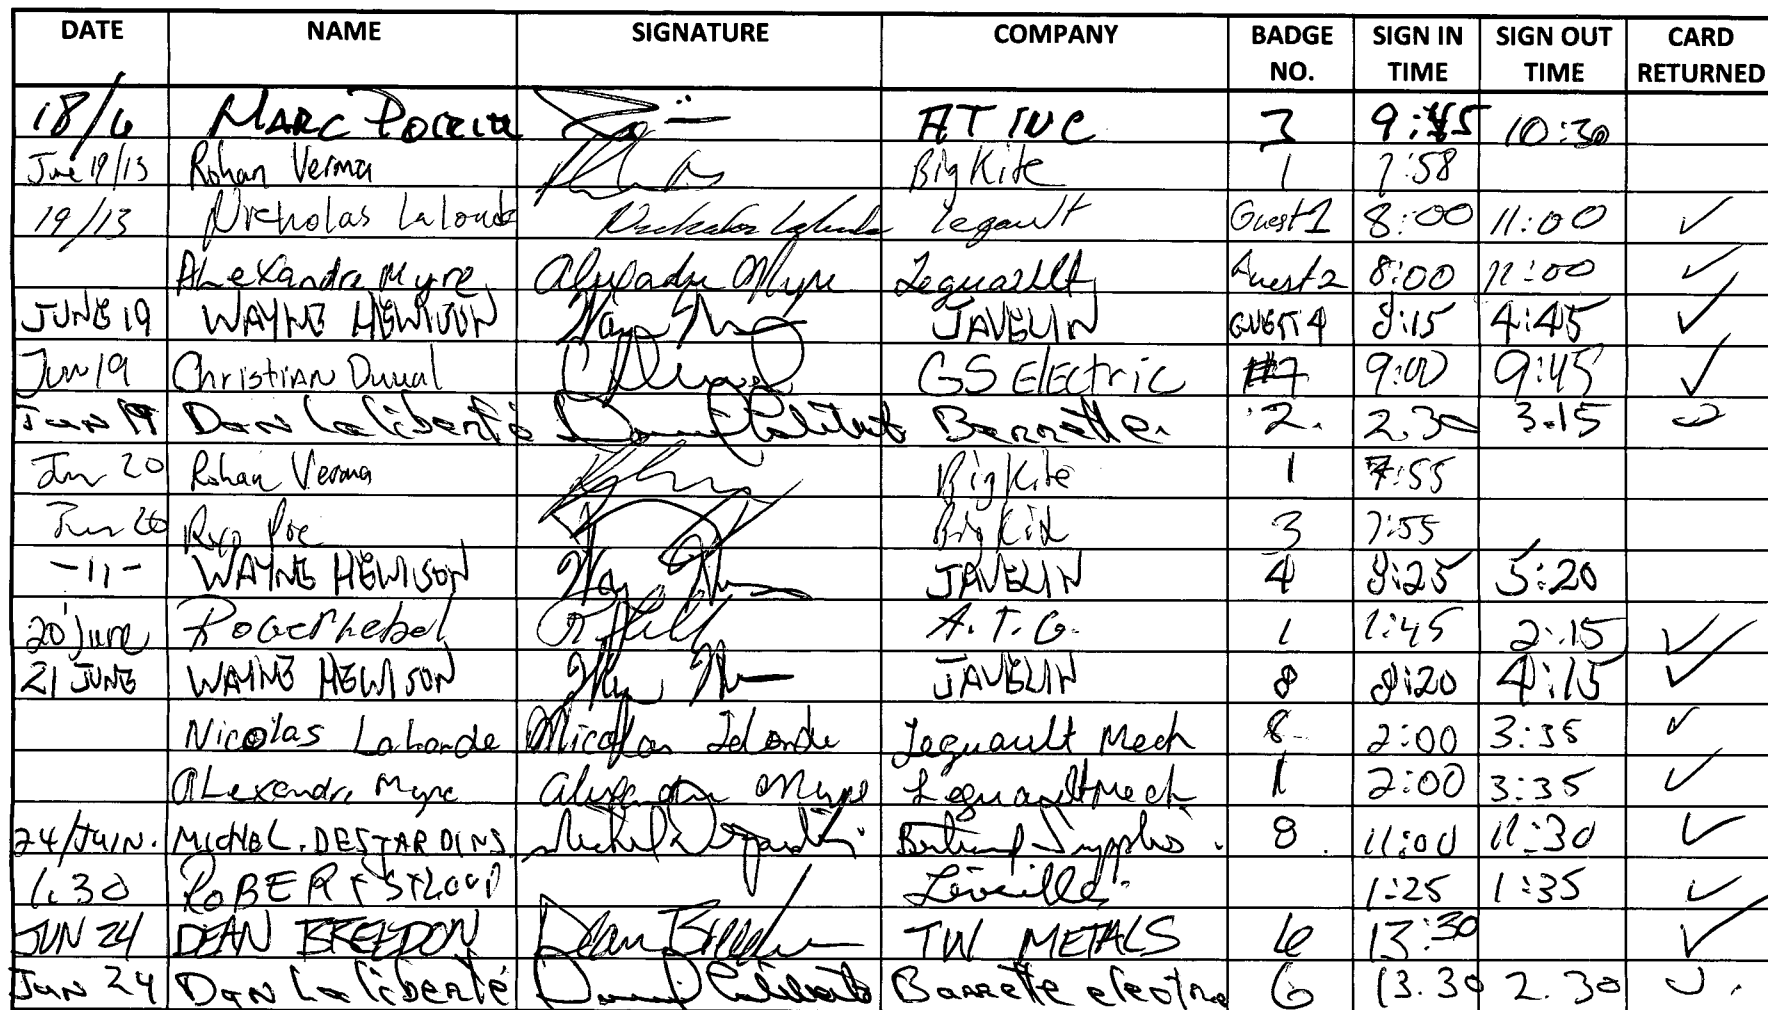 DATE NAME SIGNATURE COMPANY BADGE NO. SIGN IN TIME SIGN OUT TIME CARD RETURNED
18/6 MARC AT INC 3 9:45 10:30
June 19/13 Rohan Verma Big Kite 1 7:58
19/13 Nicholas Lalonde Nicholas Lalonde Legault Guest 1 8:00 11:00 ✓
ALexandre Myre Alexandre Myre Leguault Guest 2 8:00 11:00 ✓
JUNE 19 WAYNE HEWISON JAVELIN GUEST 4 8:15 4:45 ✓
Jun 19 Christian Duval C Duval GS Electric #7 9:00 9:45 ✓
Jun 19 Dan Laliberté Barrette. 2. 2.30 3.15
Jun 20 Rohan Verma Big Kite 1 7:55
Jun 20 3 7:55
-11- WAYNE HEWISON JAVELIN 4 8:25 5:20
20 June Roger hebel A.T.G. 1 1:45 2:15 ✓
21 JUNE WAYNE HEWISON JAVELIN 8 8:20 4:15 ✓
Nicolas Lalonde Nicolas Lalonde Leguault Mech 8 2:00 3:35 ✓
ALexandre Myre Alexandre Myre Leguault Mech 1 2:00 3:35 ✓
24/JUIN. MICHEL. DESJARDINS. Michel Desjardins Bertrand Supplies. 8 11:00 11:30 ✓
1:30 ROBERT Léveillé 1:25 1:35 ✓
JUN 24 DEAN BREEDON Dean Breedon TW METALS 6 13:30 ✓
Jun 24 Dan Laliberté Barrette electric 6 13.30 2.30